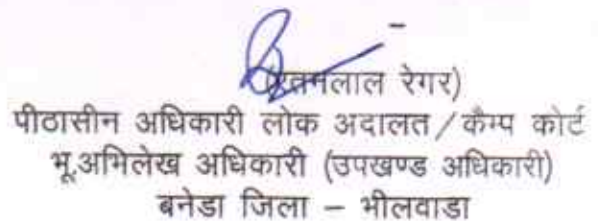 (रतनलाल रेगर)
पीठासीन अधिकारी लोक अदालत/कैम्प कोर्ट
भू.अभिलेख अधिकारी (उपखण्ड अधिकारी)
बनेडा जिला – भीलवाडा